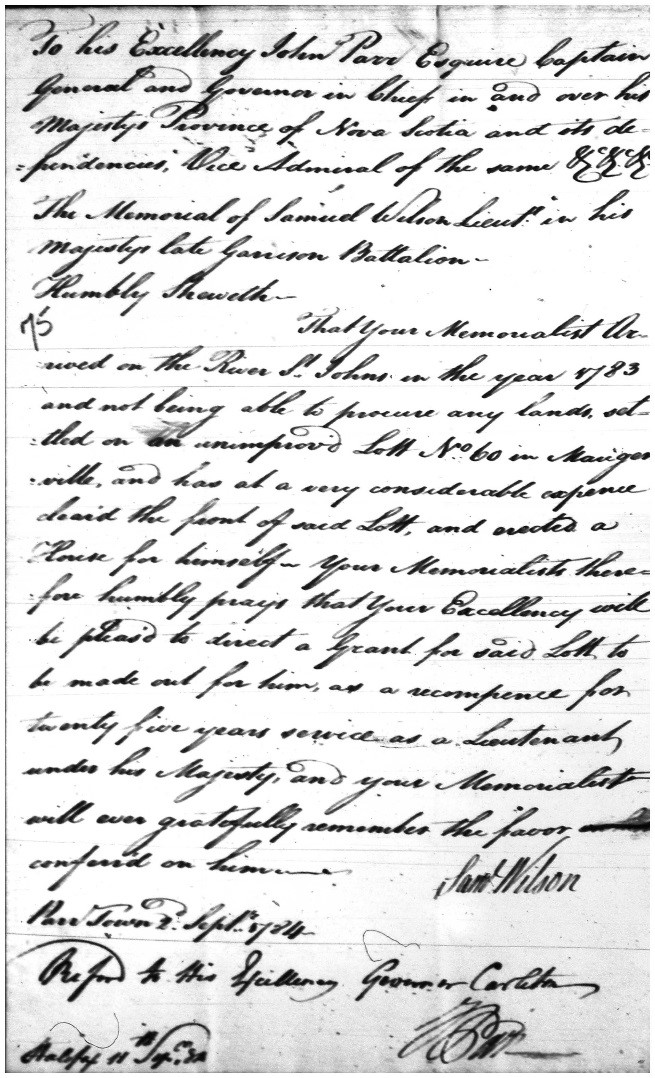 To his Excellency John Parr Esquire Captain
General and Governor in Chief in and over his
Majestys Province of Nova Scotia and its de=
=pendencies, Vice Admiral of the same &c &c &c
The Memorial of Samuel Wilson Lieut.t in his
Majestys late Garrison Battalion
Humbly Sheweth
75
That Your Memorialist Ar=
=rived on the River St. Johns in the year 1783
and not being able to procure any lands, set=
=tled on an unimprov'd Lott No 60 in Mauger
=ville, and has at a very considerable expence
cleard the front of said Lott, and erected a
House for himself Your Memorialists there=
fore humbly prays that Your Excellency will
be pleas'd to direct a Grant for said Lott to
be made out for him, as a recompence for
twenty five years service as a Lieutenant
under his Majesty, and your Memorialist
will ever gratefully remember the favor
conferd on him
Saml Wilson
Parr Town 2d Sept.r 1784
Referd to His Excellency Governor Carleton
J Parr
Halifax 11th Sepr. 84